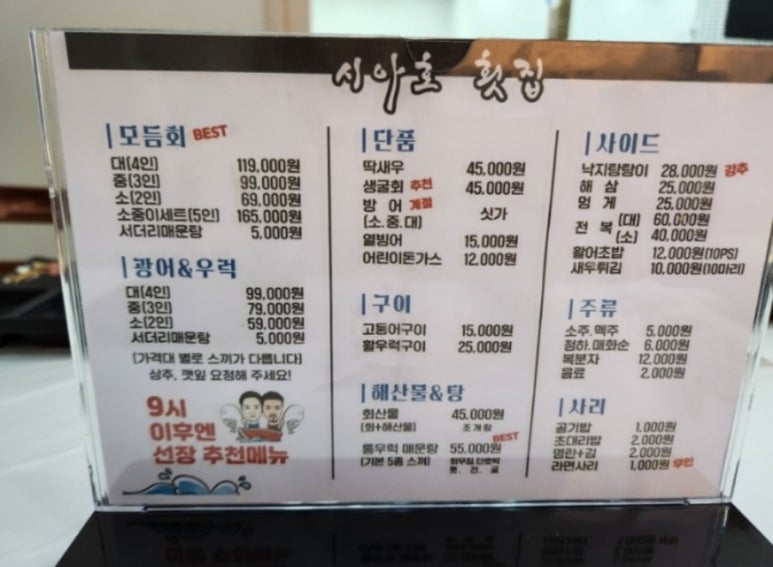 시아호 횟집
모듬회 BEST
대(4인) 119,000원
중(3인) 99,000원
소(2인) 69,000원
소중이세트(5인) 165,000원
서더리매운탕 5,000원
광어&우럭
대(4인) 99,000원
중(3인) 79,000원
소(2인) 59,000원
서더리매운탕 5,000원
(가격대 별로 스끼가 다릅니다)
상추, 깻잎 요청해 주세요!
9시
이후엔
선장 추천메뉴
단품
딱새우 45,000원
생굴회 추천 45,000원
방어 계절 싯가
(소.중.대)
열빙어 15,000원
어린이돈가스 12,000원
구이
고등어구이 15,000원
활우럭구이 25,000원
해산물&탕
회산물 45,000원
(회+해산물) 조개탕
통우럭 매운탕 55,000원 BEST
(기본 5종 스끼) 회무침, 단호박
묵, 전, 굴
사이드
낙지탕탕이 28,000원 강추
해삼 25,000원
멍게 25,000원
전복 (대) 60,000원
(소) 40,000원
활어초밥 12,000원(10PS)
새우튀김 10,000원(10마리)
주류
소주.맥주 5,000원
청하.매화순 6,000원
복분자 12,000원
음료 2,000원
사리
공기밥 1,000원
초대리밥 2,000원
명란+김 2,000원
라면사리 1,000원 무인